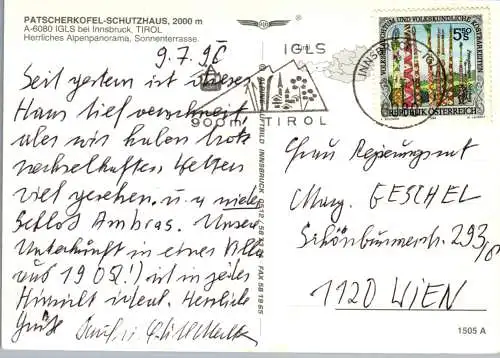 PATSCHERKOFEL-SCHUTZHAUS, 2000 m
A-6080 IGLS bei Innsbruck, TIROL
Herrliches Alpenpanorama, Sonnenterrasse.
9.7.96
Seit gestern ist unser
Haus tief verschneit,
aber wir haben trotz
wechselhaftes, Wetters
viel gesehen, u. a.
Schloß Ambras. Unsere
Unterkunft in einer Villa
aus 1905(!) ist in jeder
Hinsicht ideal. Herzliche
Grüße
IGLS
900m TIROL
INNSBRUCK
VOLKSBRAUCHTUM UND VOLKSKUNDLICHE KOSTBARKEITEN
S 5.50
REPUBLIK ÖSTERREICH
LUFTBILD INNSBRUCK 0512/58
FAX 58 19 65
Frau Regierungsrat
Marg. GESCHEL
293/8
1120 WIEN
1505 A